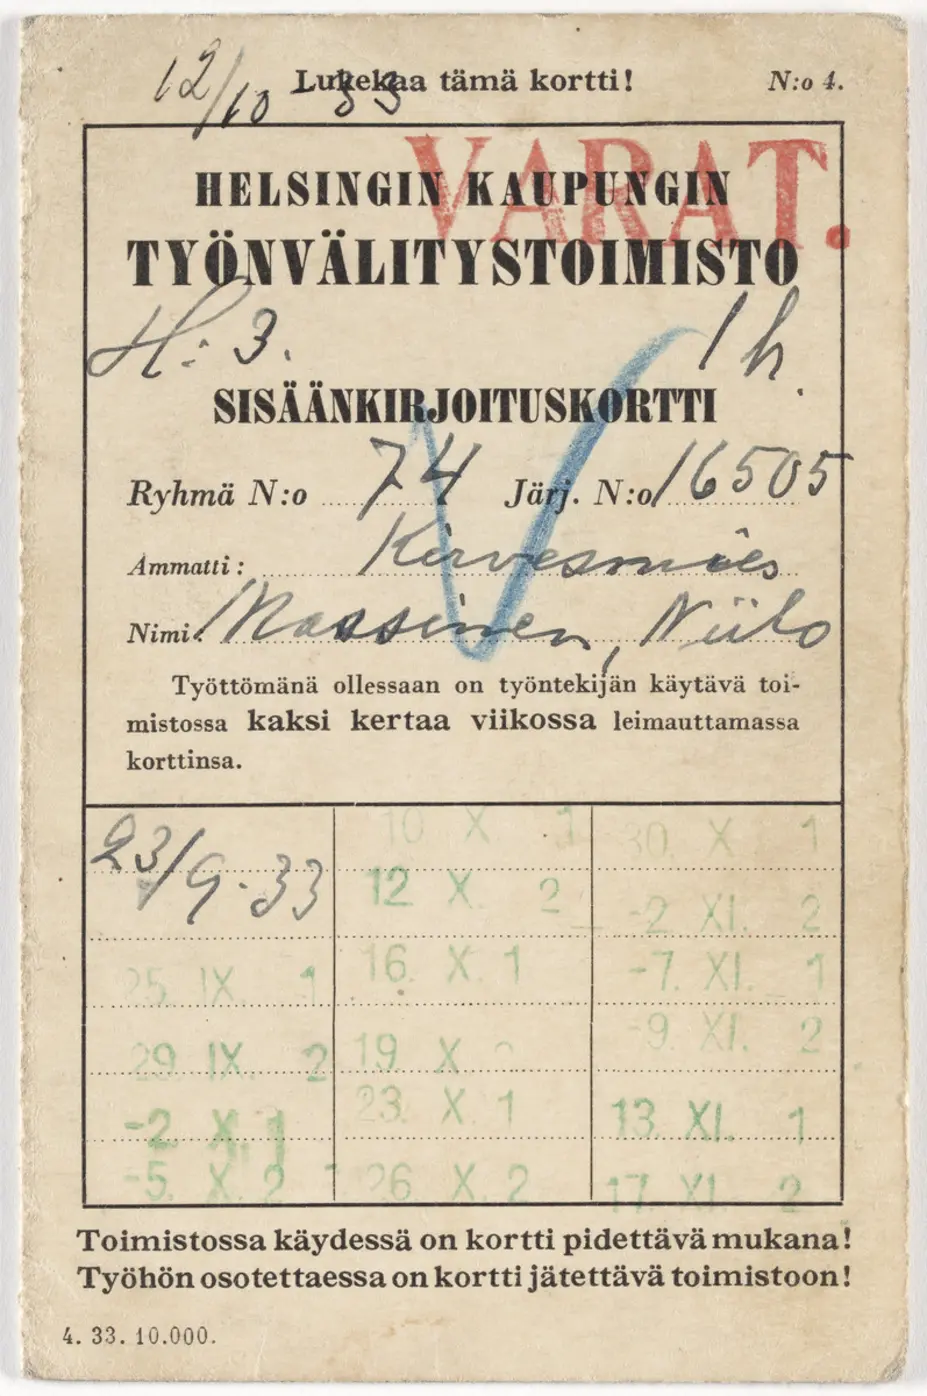 12/10 33 Lukekaa tämä kortti! N:o 4.
VARAT.
HELSINGIN KAUPUNGIN
TYÖNVÄLITYSTOIMISTO
H: 3. 1 h.
SISÄÄNKIRJOITUSKORTTI
Ryhmä N:o 74 Järj. N:o 16505
Ammatti: Kirvesmies
Nimi: Massinen, Niilo
Työttömänä ollessaan on työntekijän käytävä toi-
mistossa kaksi kertaa viikossa leimauttamassa
korttinsa.
23/9.33
25. IX. 1
29. IX. 2
-2. X. 1
-5. X. 2
10 X 1
12 X. 2
16. X. 1
19 X.
23. X 1
26 X. 2
30. X 1
-2. XI. 2
-7. XI. 1
-9. XI. 2
13. XI. 1
17. XI. 2
Toimistossa käydessä on kortti pidettävä mukana!
Työhön osotettaessa on kortti jätettävä toimistoon!
4. 33. 10.000.